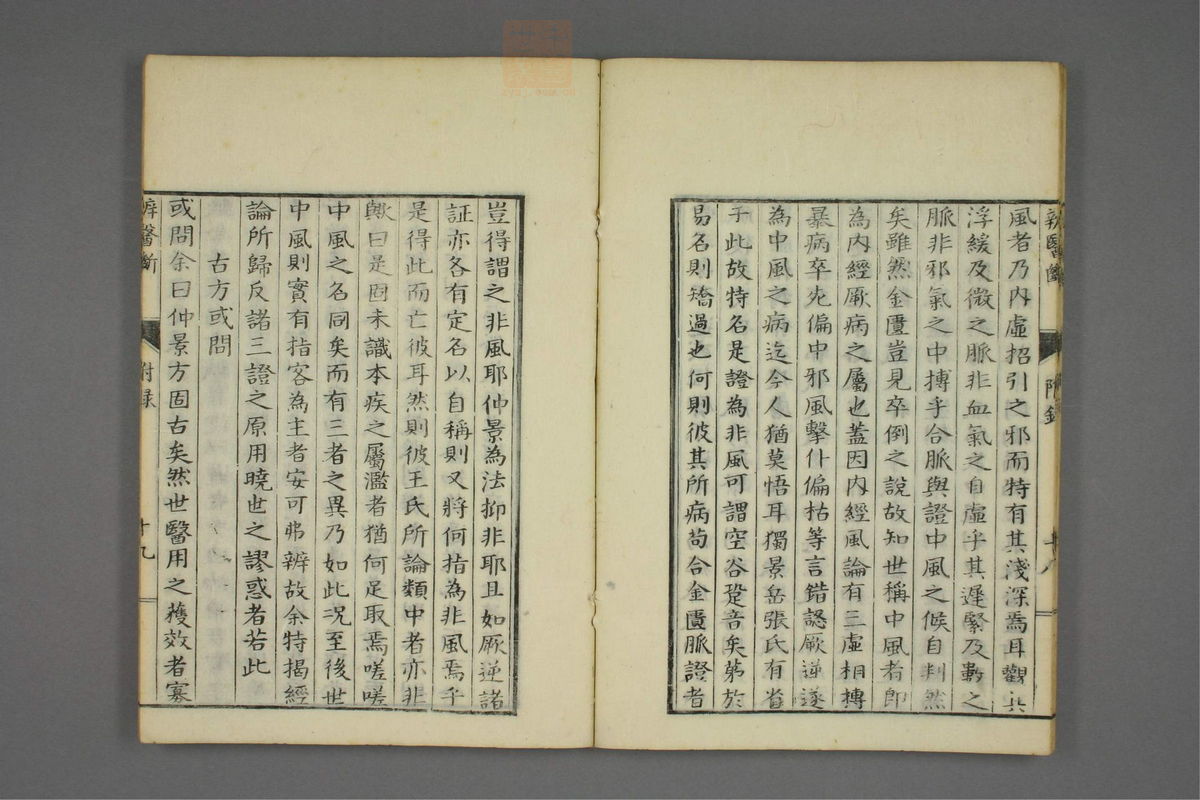 風者乃內虛招引之邪而特有其淺深焉耳觀其
浮緩及微之脈非血氣之自虛乎其遲緊及數之
脈非邪氣之中搏乎合脈與證中風之候自判然
矣雖然金匱豈見卒倒之說故知世稱中風者即
為內經厥病之屬也蓋因內經風論有三虛相搏
暴病卒死偏中邪風擊仆偏枯等言錯認厥逆遂
為中風之病迄今人猶莫悟耳獨景岳張氏有省
于此故特名是證為非風可謂空谷跫音矣苐於
易名則矯過也何則彼其所病苟合金匱脈證者
辨醫斷
附錄
十八
豈得謂之非風耶仲景為法抑非耶且如厥逆諸
証亦各有定名以自稱則又將何指為非風焉乎
是得此而亡彼耳然則彼王氏所論類中者亦非
歟曰是固未識本疾之屬濫者猶何足取焉嗟嗟
中風之名同矣而有三者之異乃如此况至後世
中風則實有指客為主者安可弗辨故余特揭經
論所歸反諸三證之原用曉世之謬惑者若此
古方或問
或問余曰仲景方固古矣然世醫用之獲效者寡
辨醫斷
附録
十九